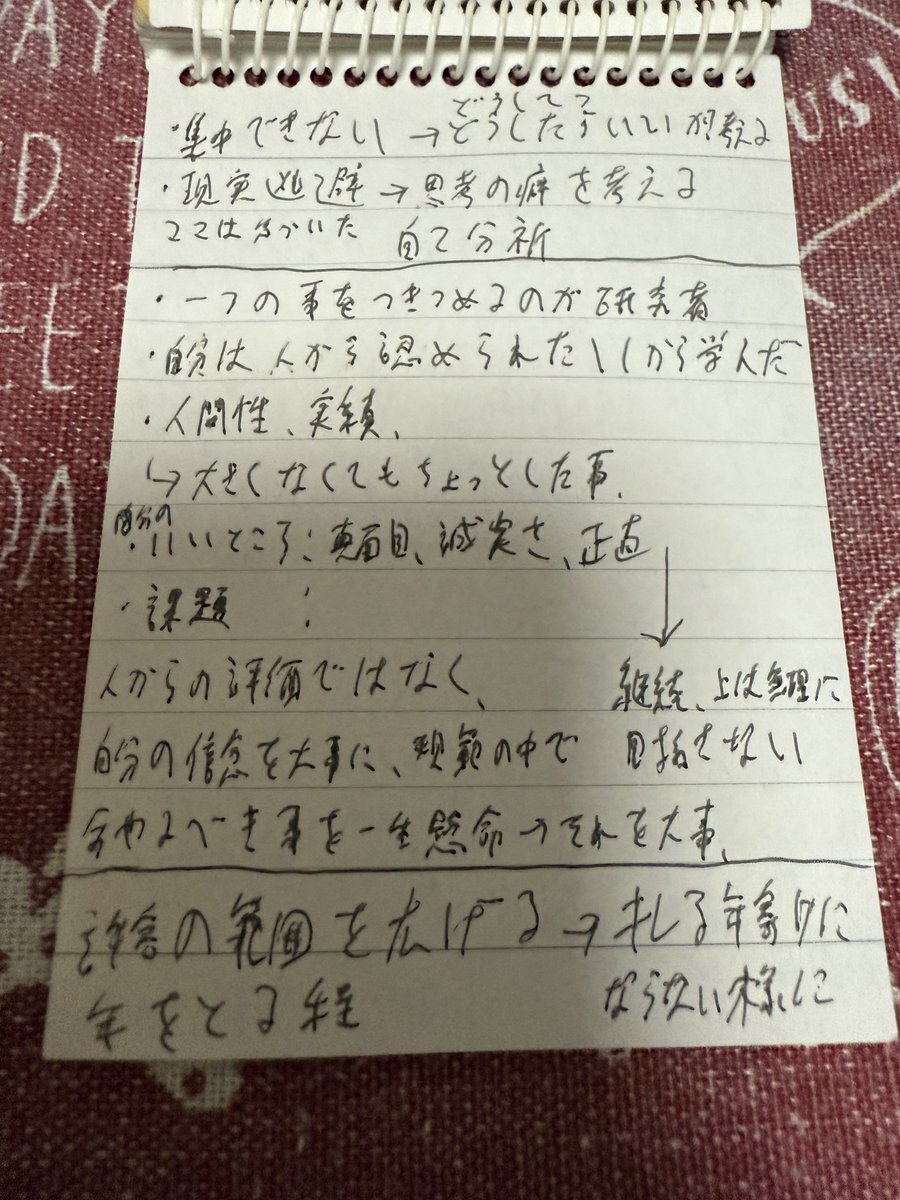 どうしてっ
・集中できない → どうしたらいいか考える
・現実逃避 → 思考の癖を考える
ココは気づいた 自己分析
・一つの事をつきつめるのが研究者
・自分は人から認められたいから学んだ
・人間性、実績、
↳ 大きくなくてもちょっとした事、
自分の
・いいところ:真面目、誠実さ、正直
・課題 :
人からの評価ではなく、
継続、上は無理に
目指さない
自分の信念を大事に、規範の中で
今やるべき事を一生懸命→それを大事、
許容の範囲を広げる → キレる年寄りに
ならない様に
年をとる程
AY
D
DA
USI